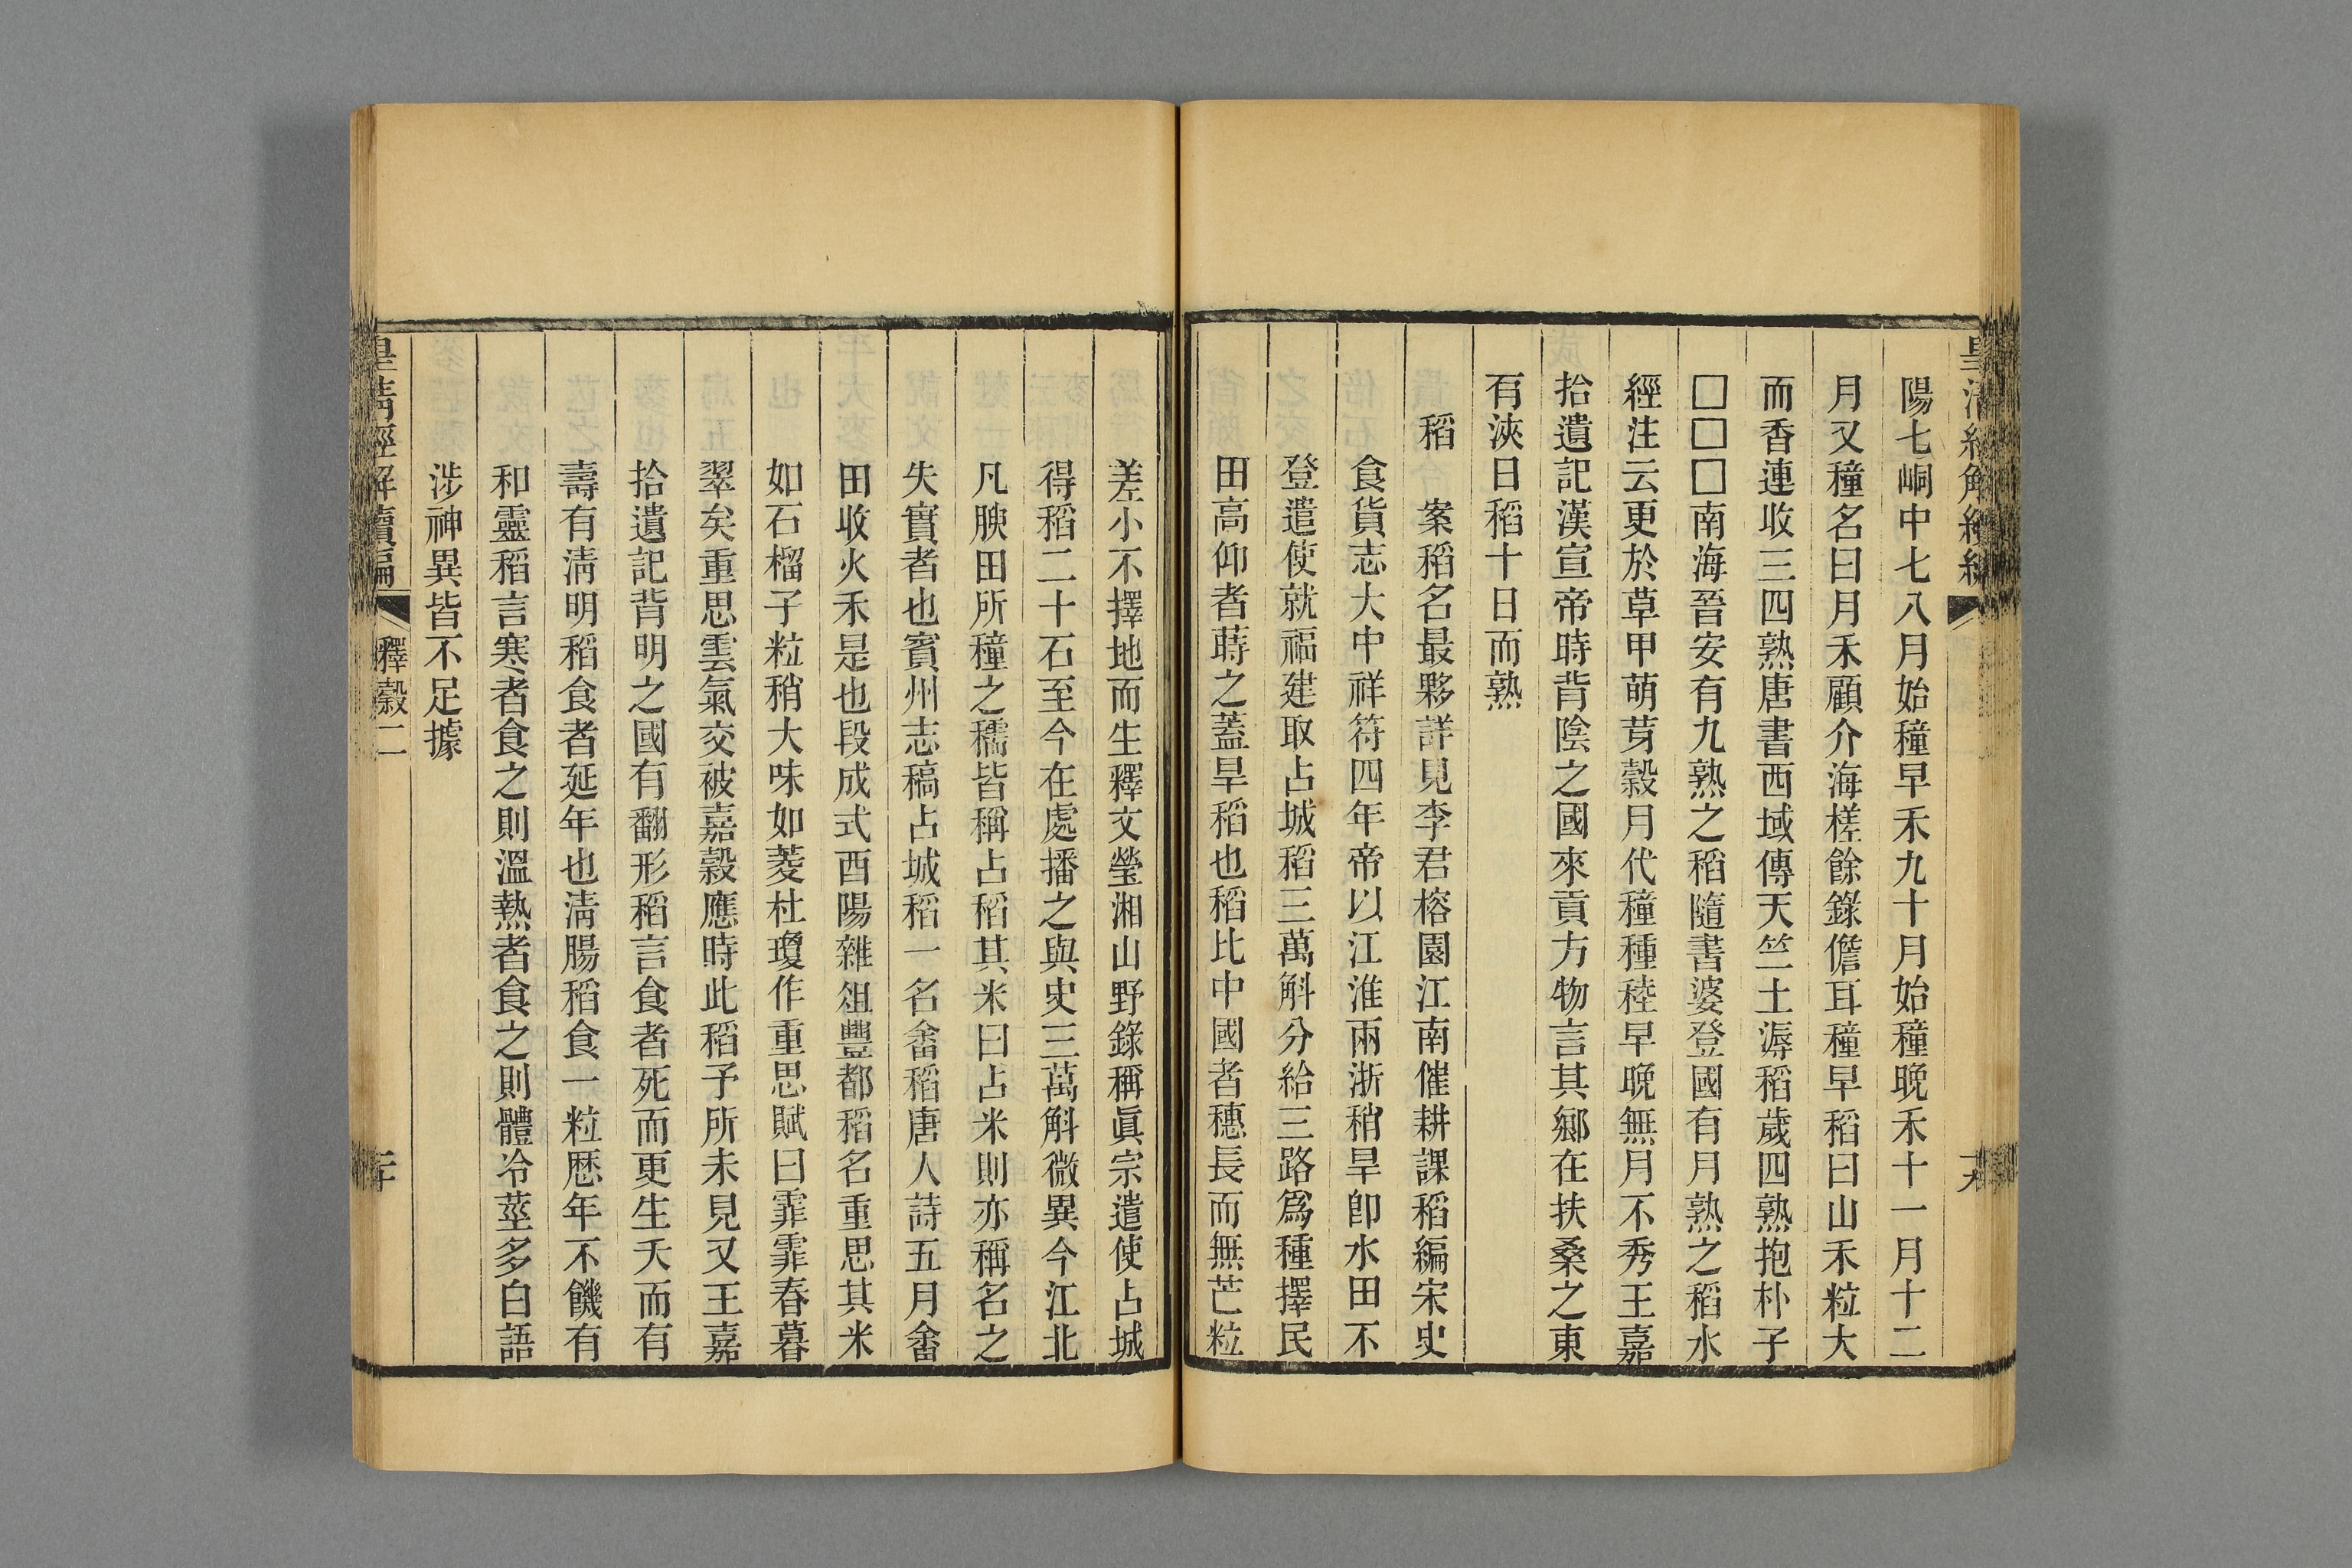 陽七峒中七八月始穜早禾九十月始穜晚禾十一月十二
月又穜名曰月禾顧介海槎餘錄儋耳穜早稻曰山禾粒大
而香連收三四熟唐書西域傳天竺土溽稻歲四熟抱朴子
□□□南海晉安有九熟之稻隨書婆登國有月熟之稻水
經注云更於草甲萌芽穀月代穜種稑早晚無月不秀王嘉
拾遺記漢宣帝時背陰之國來貢方物言其鄉在扶桑之東
有浹日稻十日而熟
稻　案稻名最夥詳見李君榕園江南催耕課稻編宋史
食貨志大中祥符四年帝以江淮兩浙稍旱卽水田不
登遣使就福建取占城稻三萬斛分給三路爲種擇民
田高仰者蒔之蓋旱稻也稻比中國者穗長而無芒粒
差小不擇地而生釋文瑩湘山野錄稱眞宗遣使占城
得稻二十石至今在處播之與史三萬斛微異今江北
凡腴田所穜之穤皆稱占稻其米曰占米則亦稱名之
失實者也賓州志稿占城稻一名畬稻唐人詩五月畬
田收火禾是也段成式酉陽雜俎豐都稻名重思其米
如石榴子粒稍大味如菱杜瓊作重思賦曰霏霏春暮
翠矣重思雲氣交被嘉穀應時此稻予所未見又王嘉
拾遺記背明之國有翻形稻言食者死而更生夭而有
壽有淸明稻食者延年也淸腸稻食一粒歷年不饑有
和靈稻言寒者食之則溫熱者食之則體冷莖多白語
涉神異皆不足據
皇淸經解續編
釋穀二